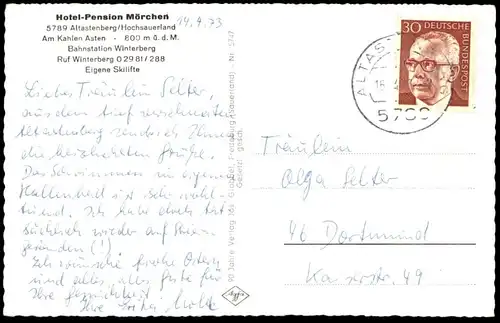 Hotel-Pension Mörchen
5789 Altastenberg/Hochsauerland
Am Kahlen Asten - 800 m ü. d. M.
Bahnstation Winterberg
Ruf Winterberg 0 29 81 / 288
Eigene Skilifte
14.4.73
Liebes Fräulein Selter,
aus dem tief verschneiten
Altastenberg senden Ihnen
die herzlichsten Grüße.
Das Schwimmen im eigenen
Hallenbad ist sehr wohl-
tuend. Ich habe doch tat-
sächlich wieder auf Skiern
gestanden (!)
Ich wünsche frohe Ostern
und alles, alles Gute für
Ihre Gesundheit!
Ihre
70 Jahre Verlag
Gesetzl. gesch.
Agfa
30
DEUTSCHE BUNDESPOST
ALTAS
5789
Fräulein
Olga Selter
46 Dortmund
Kaiserstr. 49